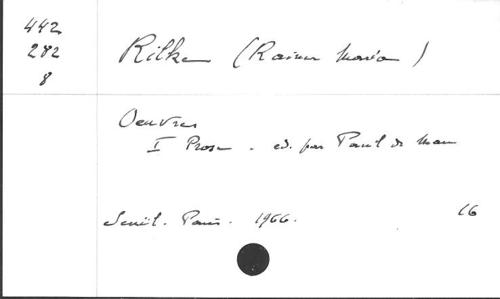 442
282
8
Rilke (Rainer Maria)
Oeuvres
I Prose. ed. par Paul de Man
Seuil. Paris. 1966.
16